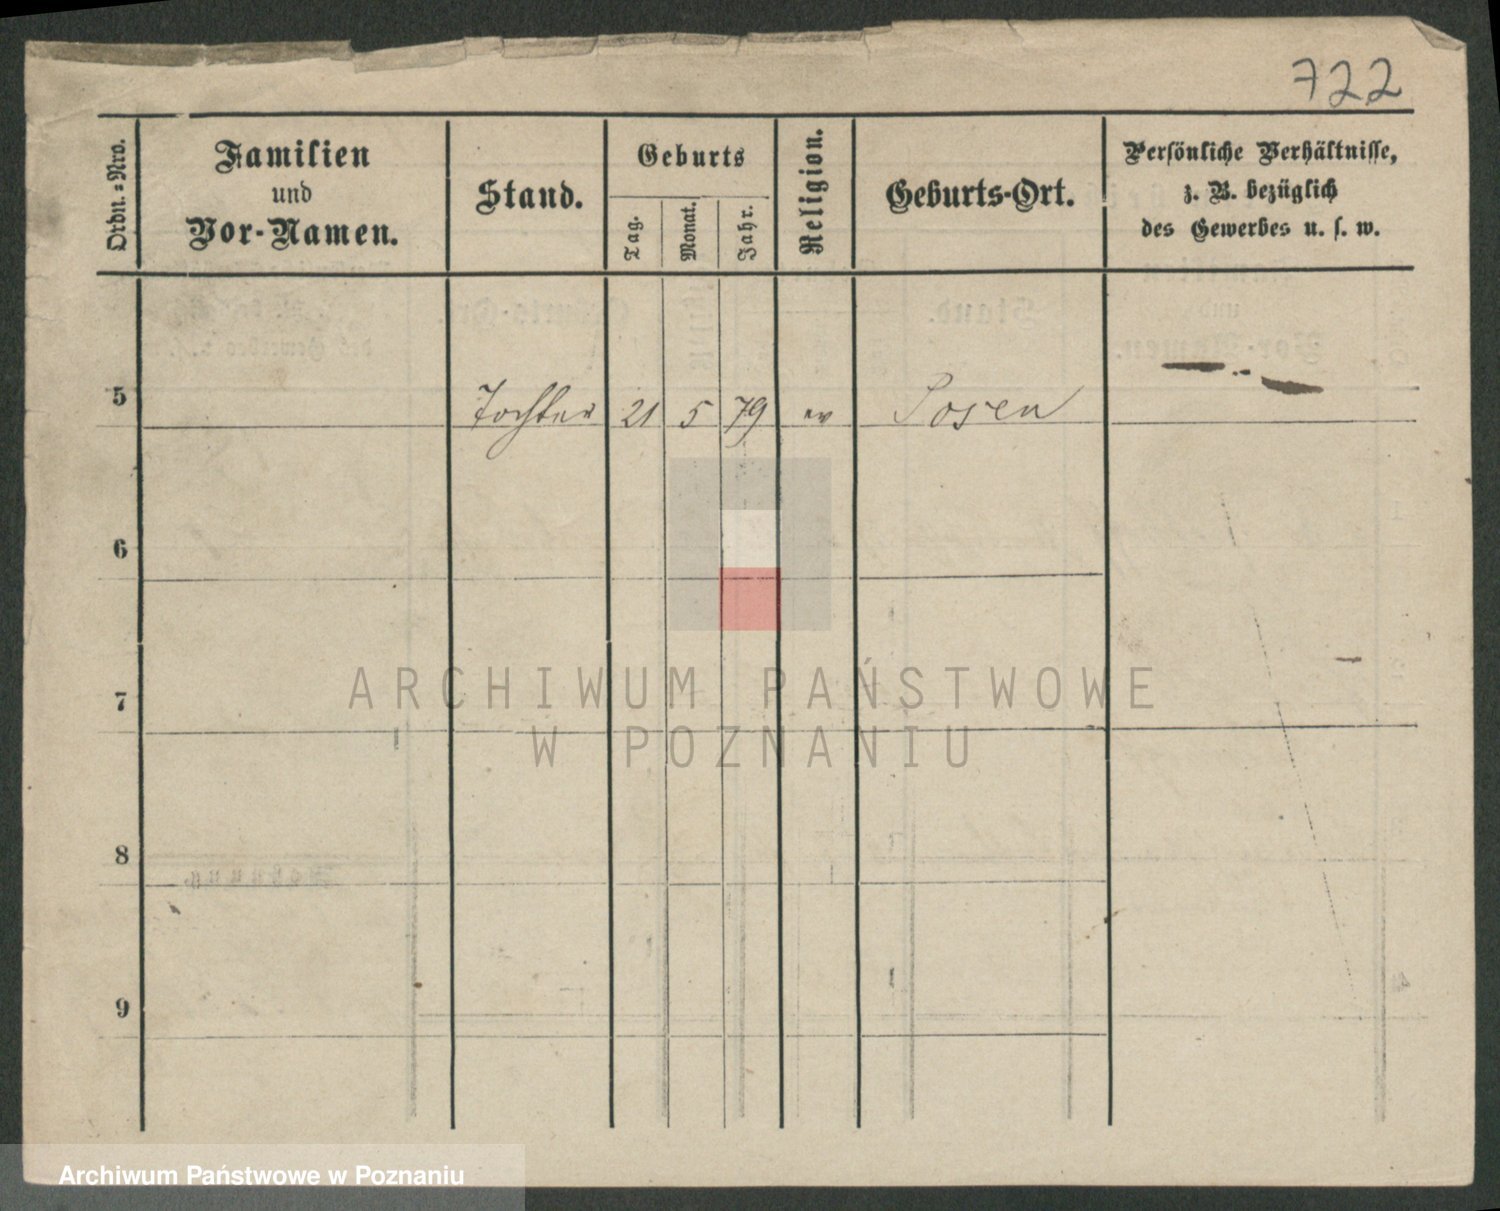 722
Ordn.=Nro.
Familien
und
Vor-Namen.
Stand.
Geburts
Tag.
Monat.
Jahr.
Religion.
Geburts-Ort.
Persönliche Verhältnisse,
z. B. bezüglich
des Gewerbes u. s. w.
5 Tochter 21 5 79 ev Posen
6
7
8
9
ARCHIWUM PAŃSTWOWE
W POZNANIU
Archiwum Państwowe w Poznaniu